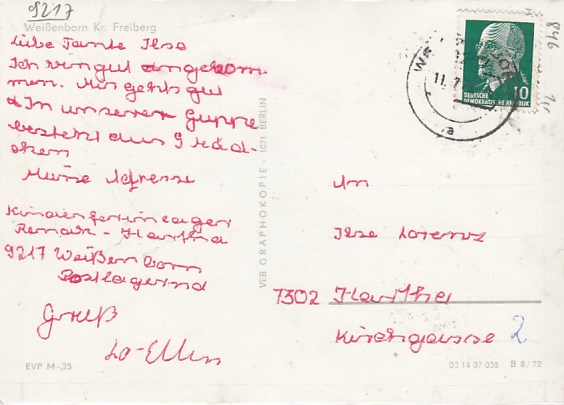 9217
Weißenborn Kr. Freiberg
Liebe Tante Ilse
Ich bin gut angekom-
men. Mir gehts gut
In unserer Guppe
besteht aus 9 Mäd-
chen
Meine Adresse
Kinderferienlager
Remak - Hartha
9217 Weißenborn
Postlagernd
Gruß
VEB GRAPHOKOPIE · 1071 BERLIN
EVP M -,25
11.7
a
DEUTSCHE
DEMOKRATISCHE REPUBLIK
10
846
An
Ilse Lorenz
7302 Hartha
Kirchgasse 2
03 14 37 003 B 8/72